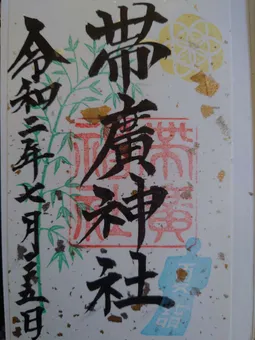 帯廣神社
令和二年七月二五日
帯廣
神社